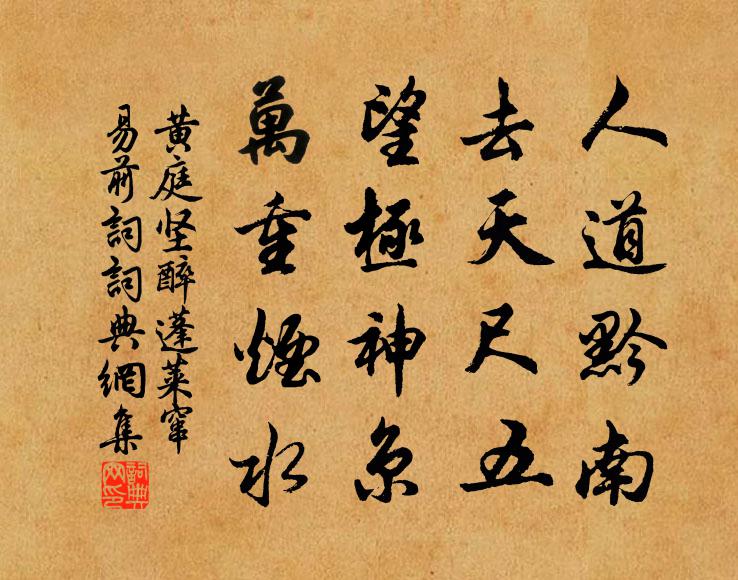 人道黔南
去天尺五
望極神京
萬重煙水
黃庭坚醉蓬萊窜
易前詞詞典網集
詞典網印